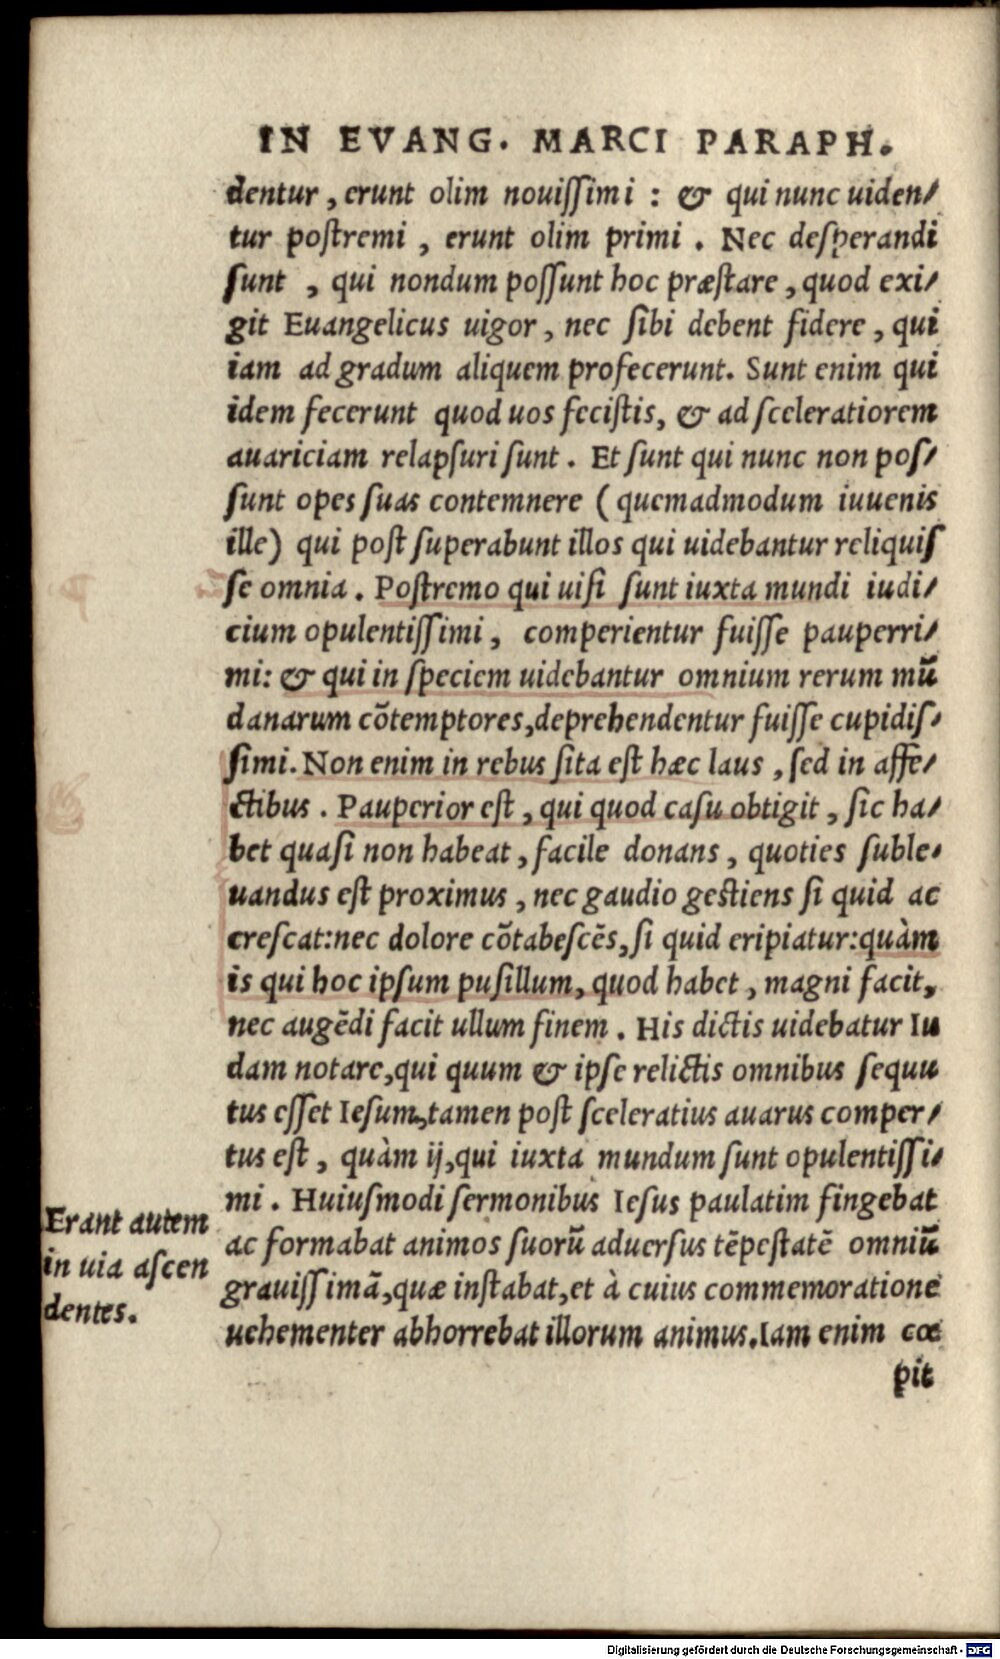 IN EVANG. MARCI PARAPH.
dentur, erunt olim nouissimi : & qui nunc uiden/
tur postremi , erunt olim primi . Nec desperandi
sunt , qui nondum possunt hoc præstare, quod exi/
git Euangelicus uigor, nec sibi debent fidere, qui
iam ad gradum aliquem profecerunt. Sunt enim qui
idem fecerunt quod uos fecistis, & ad sceleratiorem
auariciam relapsuri sunt . Et sunt qui nunc non pos/
sunt opes suas contemnere ( quemadmodum iuuenis
ille) qui post superabunt illos qui uidebantur reliquis
se omnia . Postremo qui uisi sunt iuxta mundi iudi/
cium opulentissimi, comperientur fuisse pauperri/
mi: & qui in speciem uidebantur omnium rerum mū
danarum cōtemptores,deprehendentur fuisse cupidis/
simi. Non enim in rebus sita est hæc laus , sed in affe/
ctibus . Pauperior est, qui quod casu obtigit, sic ha/
bet quasi non habeat, facile donans, quoties suble/
uandus est proximus, nec gaudio gestiens si quid ac
crescat:nec dolore cōtabescēs, si quid eripiatur:quàm
is qui hoc ipsum pusillum, quod habet, magni facit,
nec augēdi facit ullum finem . His dictis uidebatur Iu
dam notare,qui quum & ipse relictis omnibus sequu
tus esset Iesum,tamen post sceleratius auarus comper/
tus est, quàm ij,qui iuxta mundum sunt opulentissi/
mi . Huiusmodi sermonibus Iesus paulatim fingebat
ac formabat animos suorū aduersus tēpestatē omniū
grauissimā,quæ instabat,et à cuius commemoratione
uehementer abhorrebat illorum animus.Iam enim cœ
pit
Erant autem
in uia ascen
dentes.
Digitalisierung gefördert durch die Deutsche Forschungsgemeinschaft - DFG